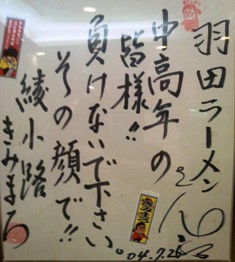 羽田ラーメンさん江
中高年の
皆様!!
負けないで下さい
その顔で!!
綾小路
きみまろ
'04.7.26